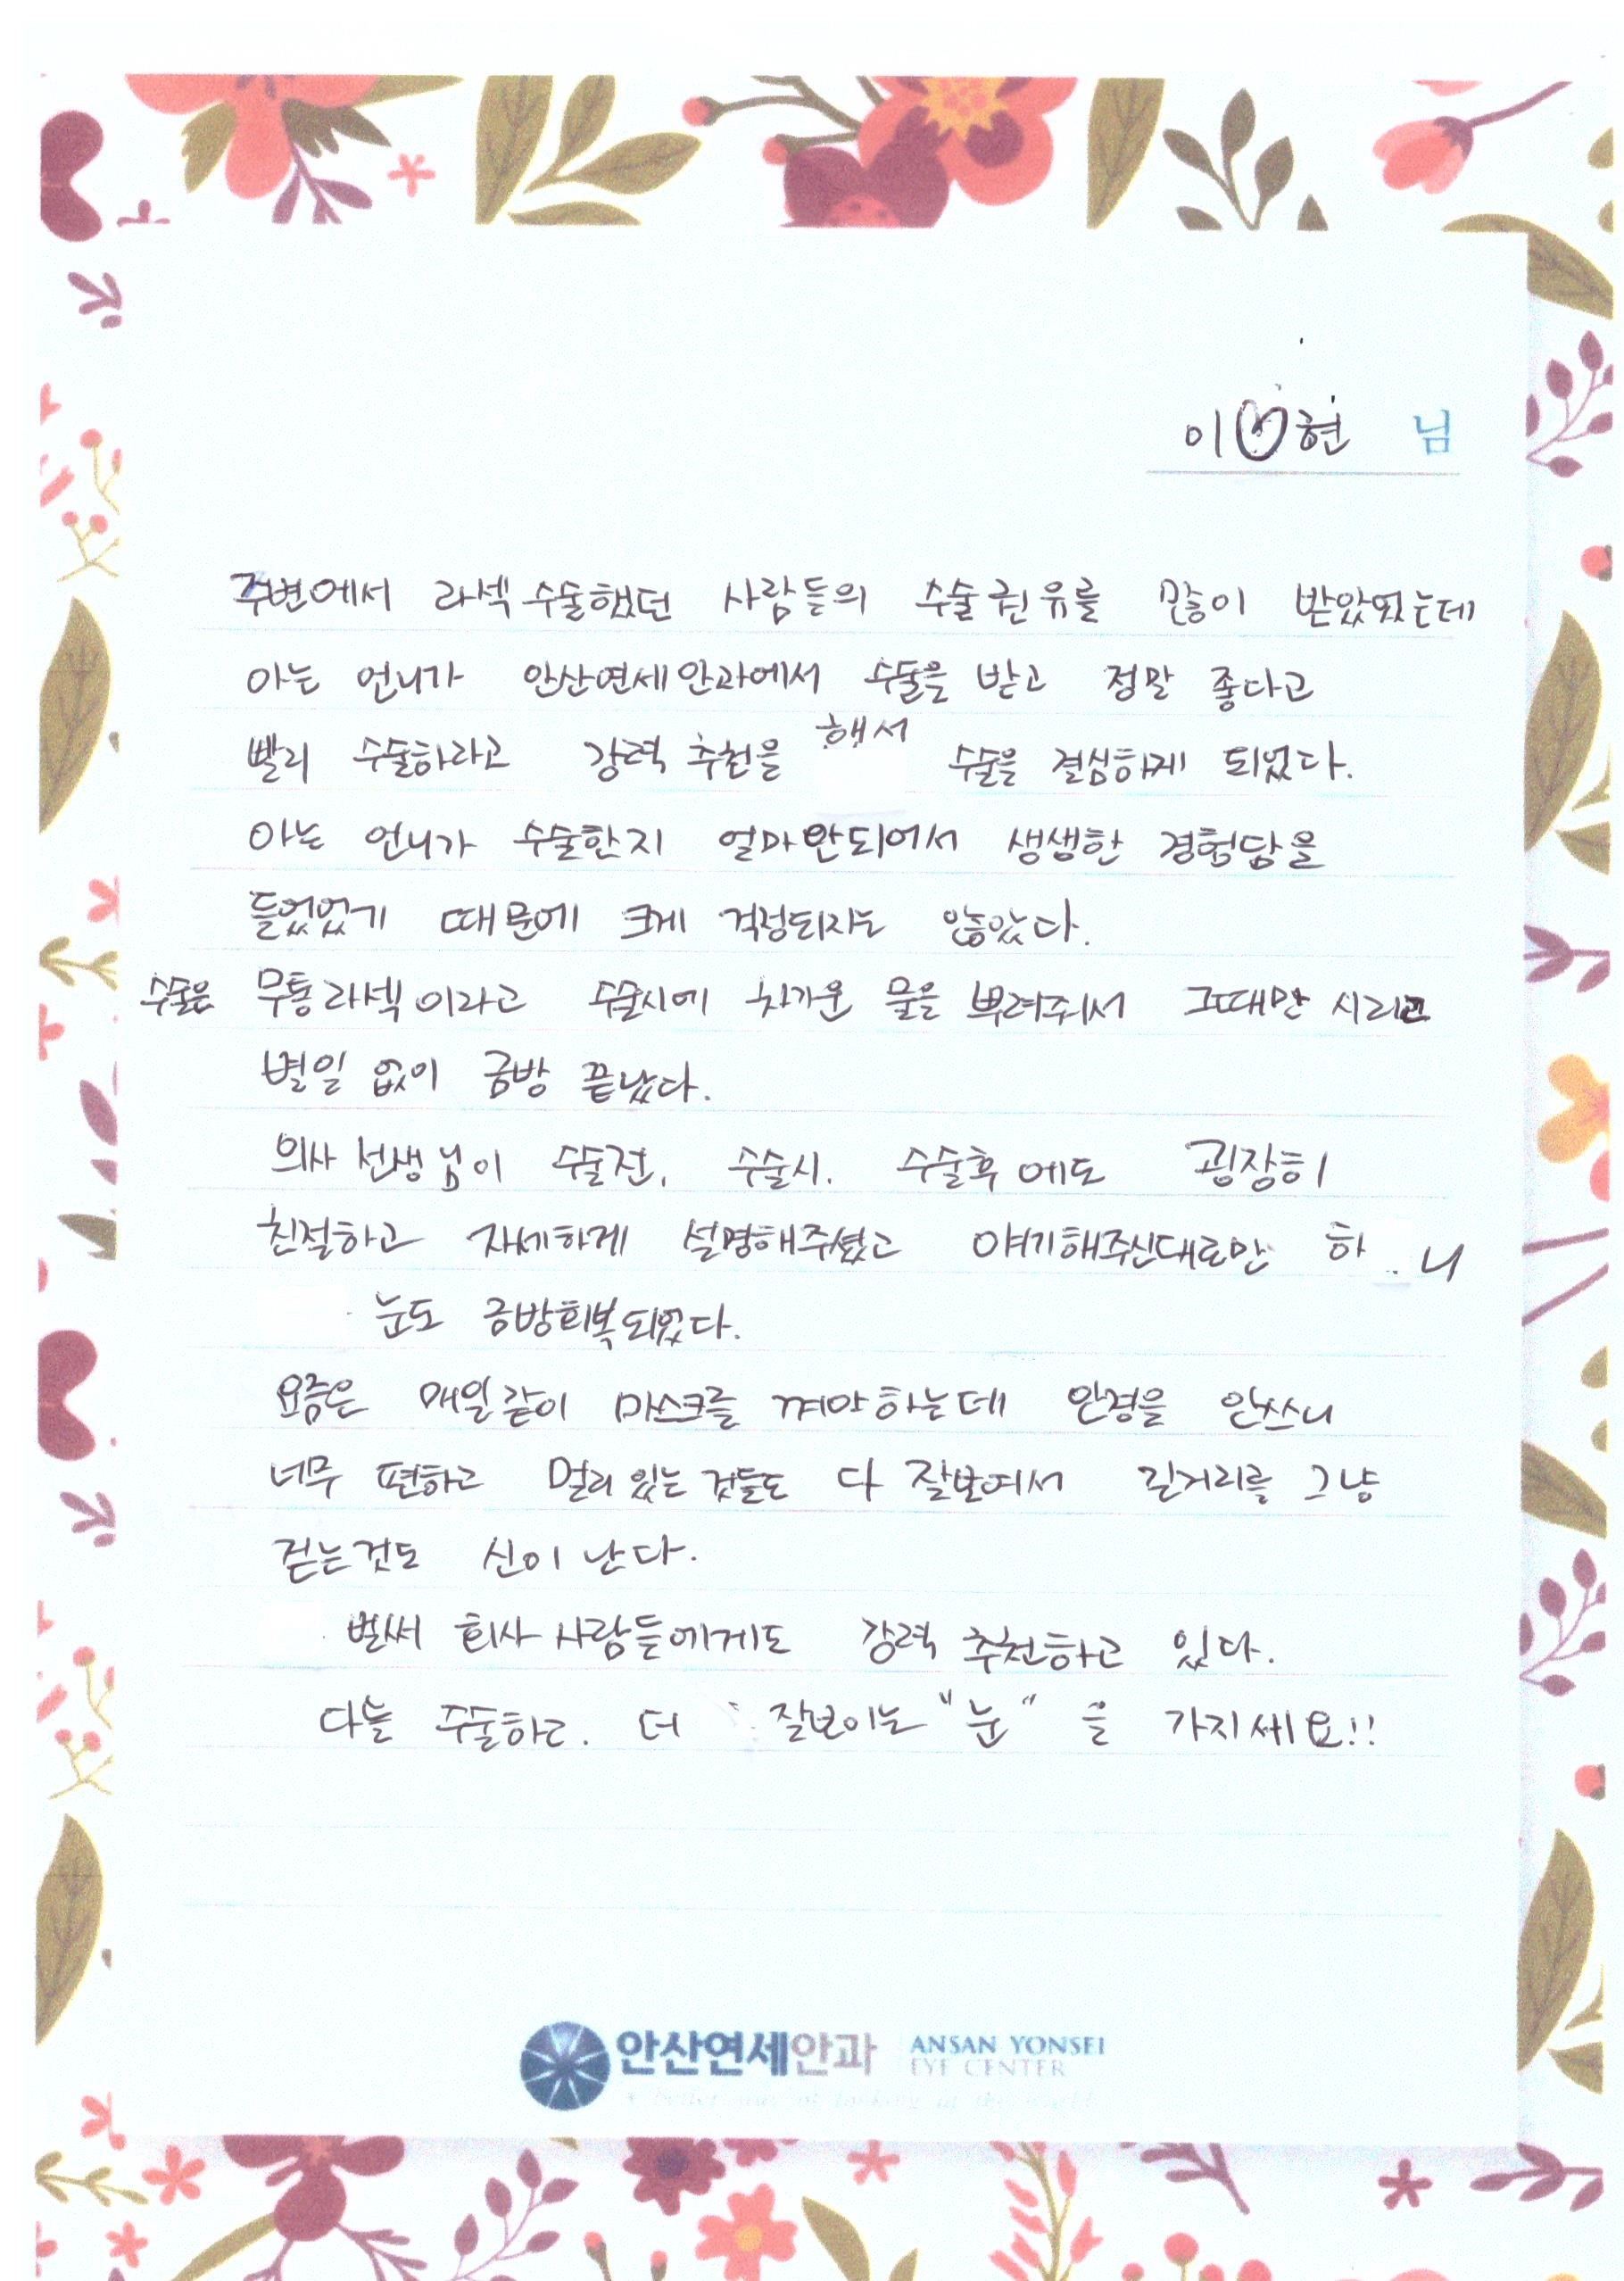 이♡현 님
주변에서 라섹 수술했던 사람들의 수술권유를 많이 받았었는데
아는 언니가 안산연세안과에서 수술을 받고 정말 좋다고
빨리 수술하라고 강력 추천을 해서 수술을 결심하게 되었다.
아는 언니가 수술한지 얼마안되어서 생생한 경험담을
들었었기 때문에 크게 걱정되지는 않았다.
수술은 무통라섹이라고 수술시에 차가운 물을 뿌려줘서 그때만 시리고
별일 없이 금방 끝났다.
의사 선생님이 수술전, 수술시. 수술후에도 굉장히
친절하고 자세하게 설명해주셨고 얘기해주신대로만 하니
눈도 금방회복되었다.
요즘은 매일같이 마스크를 껴야하는데 안경을 안쓰니
너무 편하고 멀리 있는 것들도 다 잘보여서 길거리를 그냥
걷는것도 신이 난다.
벌써 회사 사람들에게도 강력 추천하고 있다.
다들 수술하고. 더 잘보이는 "눈" 을 가지세요!!
안산연세안과 ANSAN YONSEI
EYE CENTER